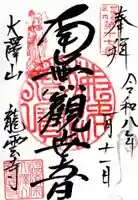 奉拝
令和八年
一月十一日
南無観世音
大澤山
龍雲寺